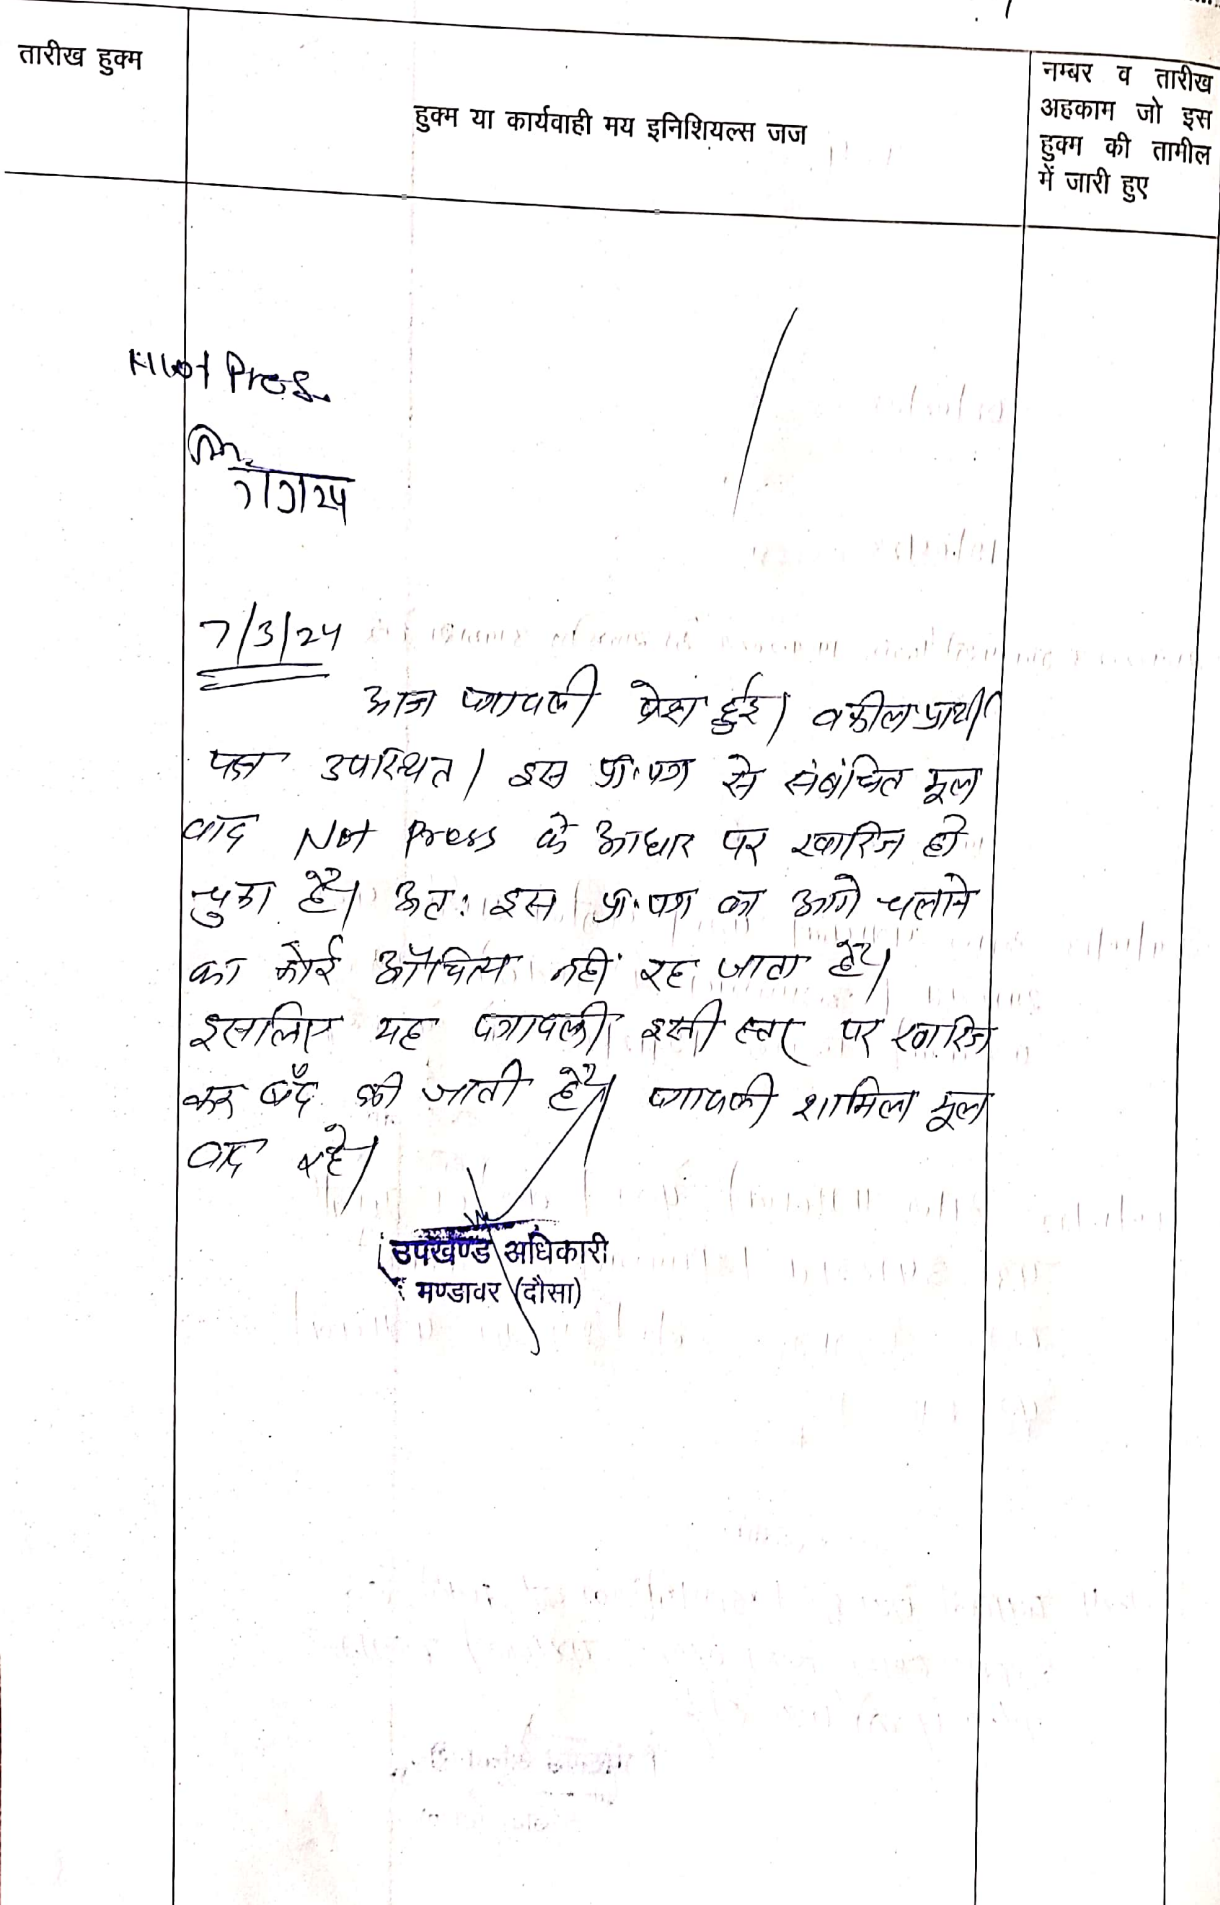 तारीख हुक्म
हुक्म या कार्यवाही मय इनिशियल्स जज
नम्बर व तारीख
अहकाम जो इस
हुक्म की तामील
में जारी हुए
Not Press.
7/3/24
आज पत्रावली पेश हुई। वकील प्रार्थी
पक्ष उपस्थित। इस प्रा.पत्र से संबंधित मूल
वाद Not Press के आधार पर खारिज हो
चुका है। अतः इस प्रा.पत्र का आगे चलाने
का कोई औचित्य नहीं रह जाता है।
इसलिए यह पत्रावली इसी स्तर पर खारिज
कर बंद की जाती है। पत्रावली शामिल मूल
वाद रहे।
उपखण्ड अधिकारी
मण्डावर (दौसा)